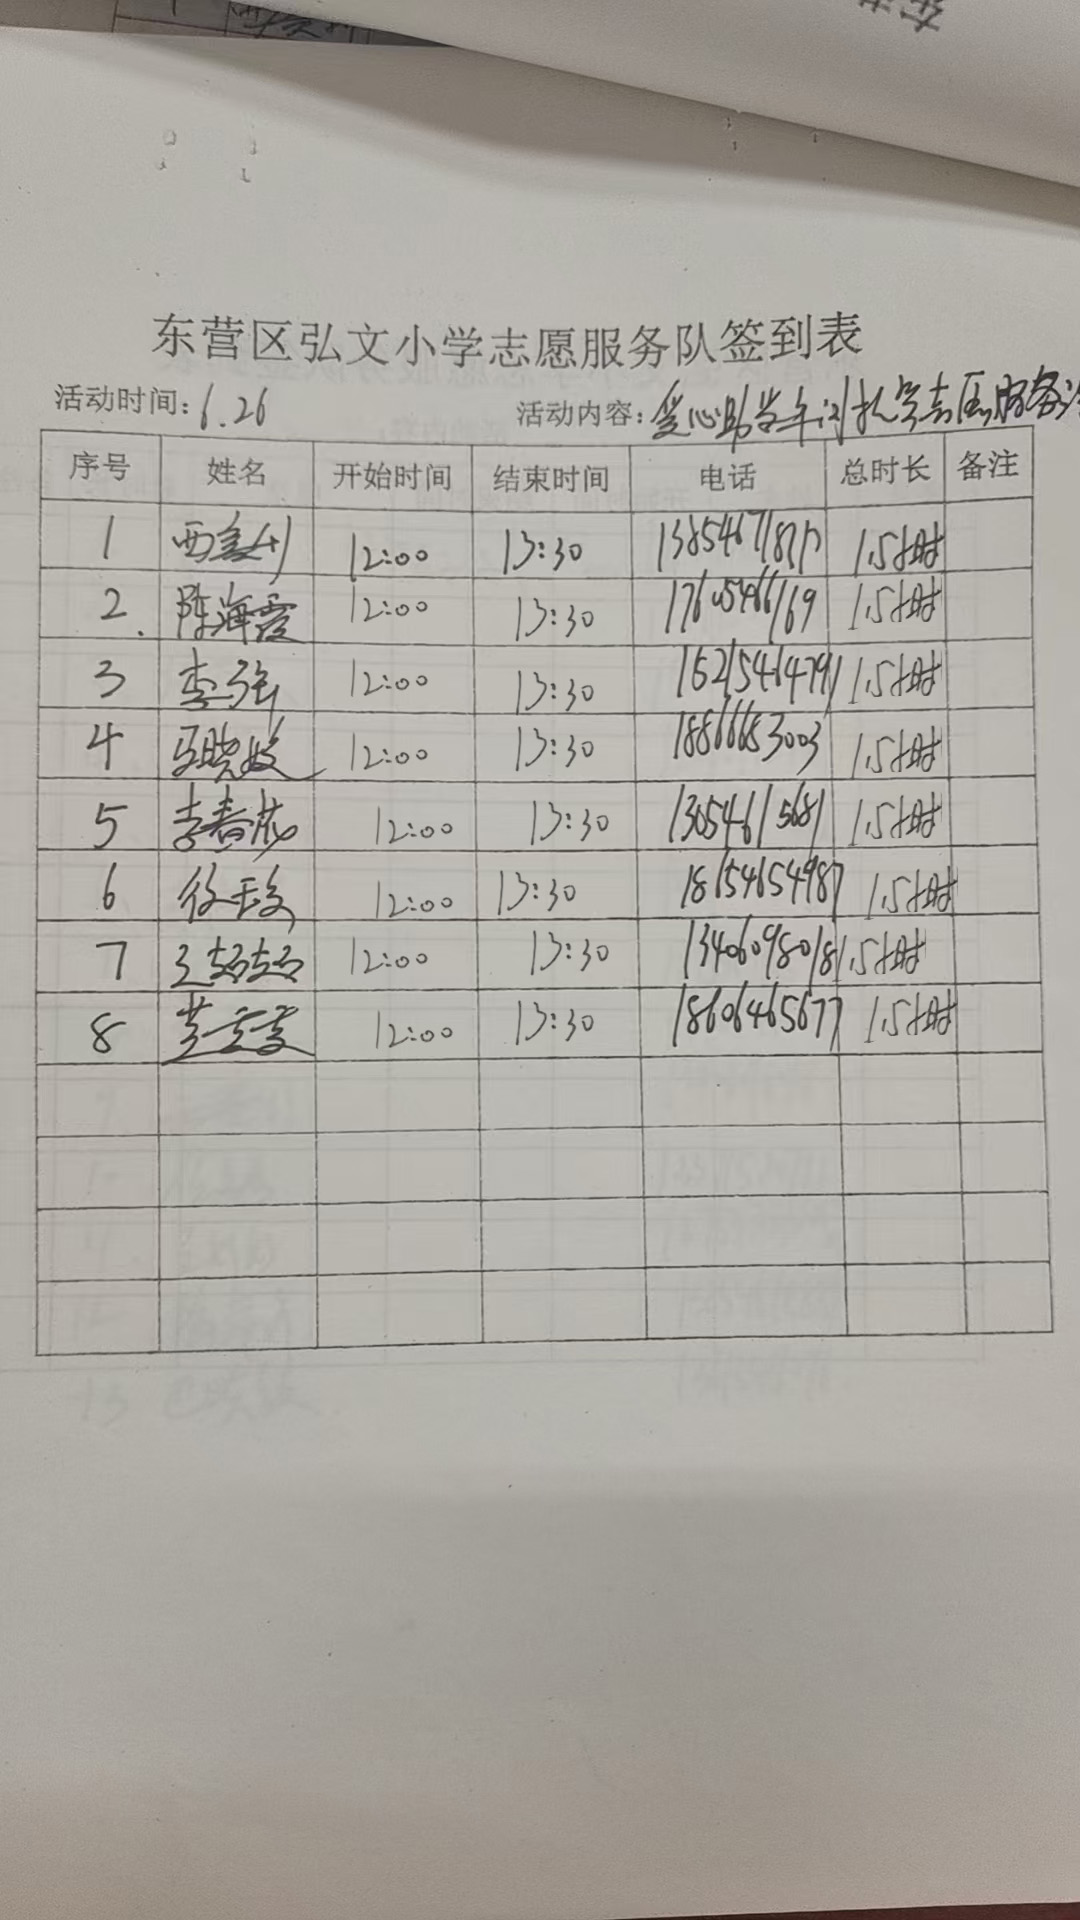 东营区弘文小学志愿服务队签到表
活动时间：6.26 活动内容：爱心助学车 志愿服务
序号 姓名 开始时间 结束时间 电话 总时长 备注
1 12:00 13:30 1.5小时
2. 陈海霞 12:00 13:30 17605466169 1.5小时
3 李强 12:00 13:30 15215461479 1.5小时
4 12:00 13:30 18866683003 1.5小时
5 李春 12:00 13:30 13054615681 1.5小时
6 徐 12:00 13:30 18154654987 1.5小时
7 王喆喆 12:00 13:30 13406098018 1.5小时
8 12:00 13:30 18606465677 1.5小时